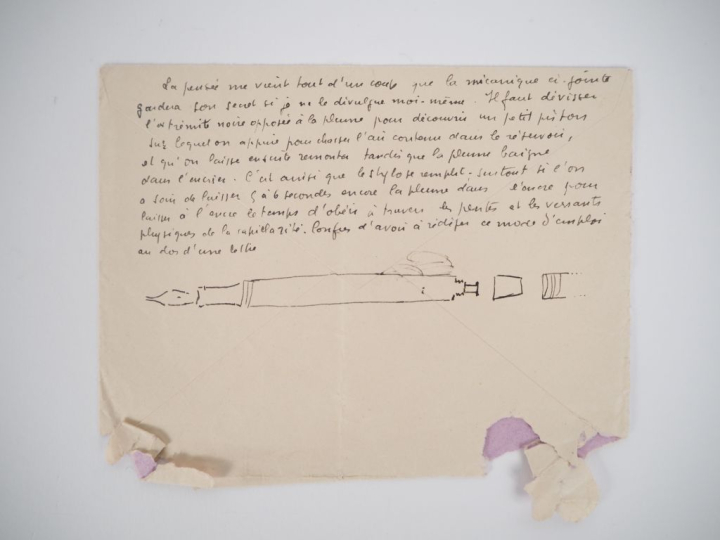 La pensée me vient tout d'un coup que la mécanique ci-jointe
gardera son secret si je ne le divulgue moi-même. Il faut dévisser
l'extrémité noire opposée à la plume pour découvrir un petit piston
sur lequel on appuie pour chasser l'air contenu dans le réservoir,
et qu'on laisse ensuite remonter tandis que la plume baigne
dans l'encrier. C'est ainsi que le stylo se remplit - surtout si l'on
a soin de laisser 5 à 6 secondes encore la plume dans l'encre pour
laisser à l'encre le temps d'obéir à travers les pentes et les versants
physiques de la capillarité. Confus d'avoir à rédiger ce mode d'emploi
au dos d'une lettre